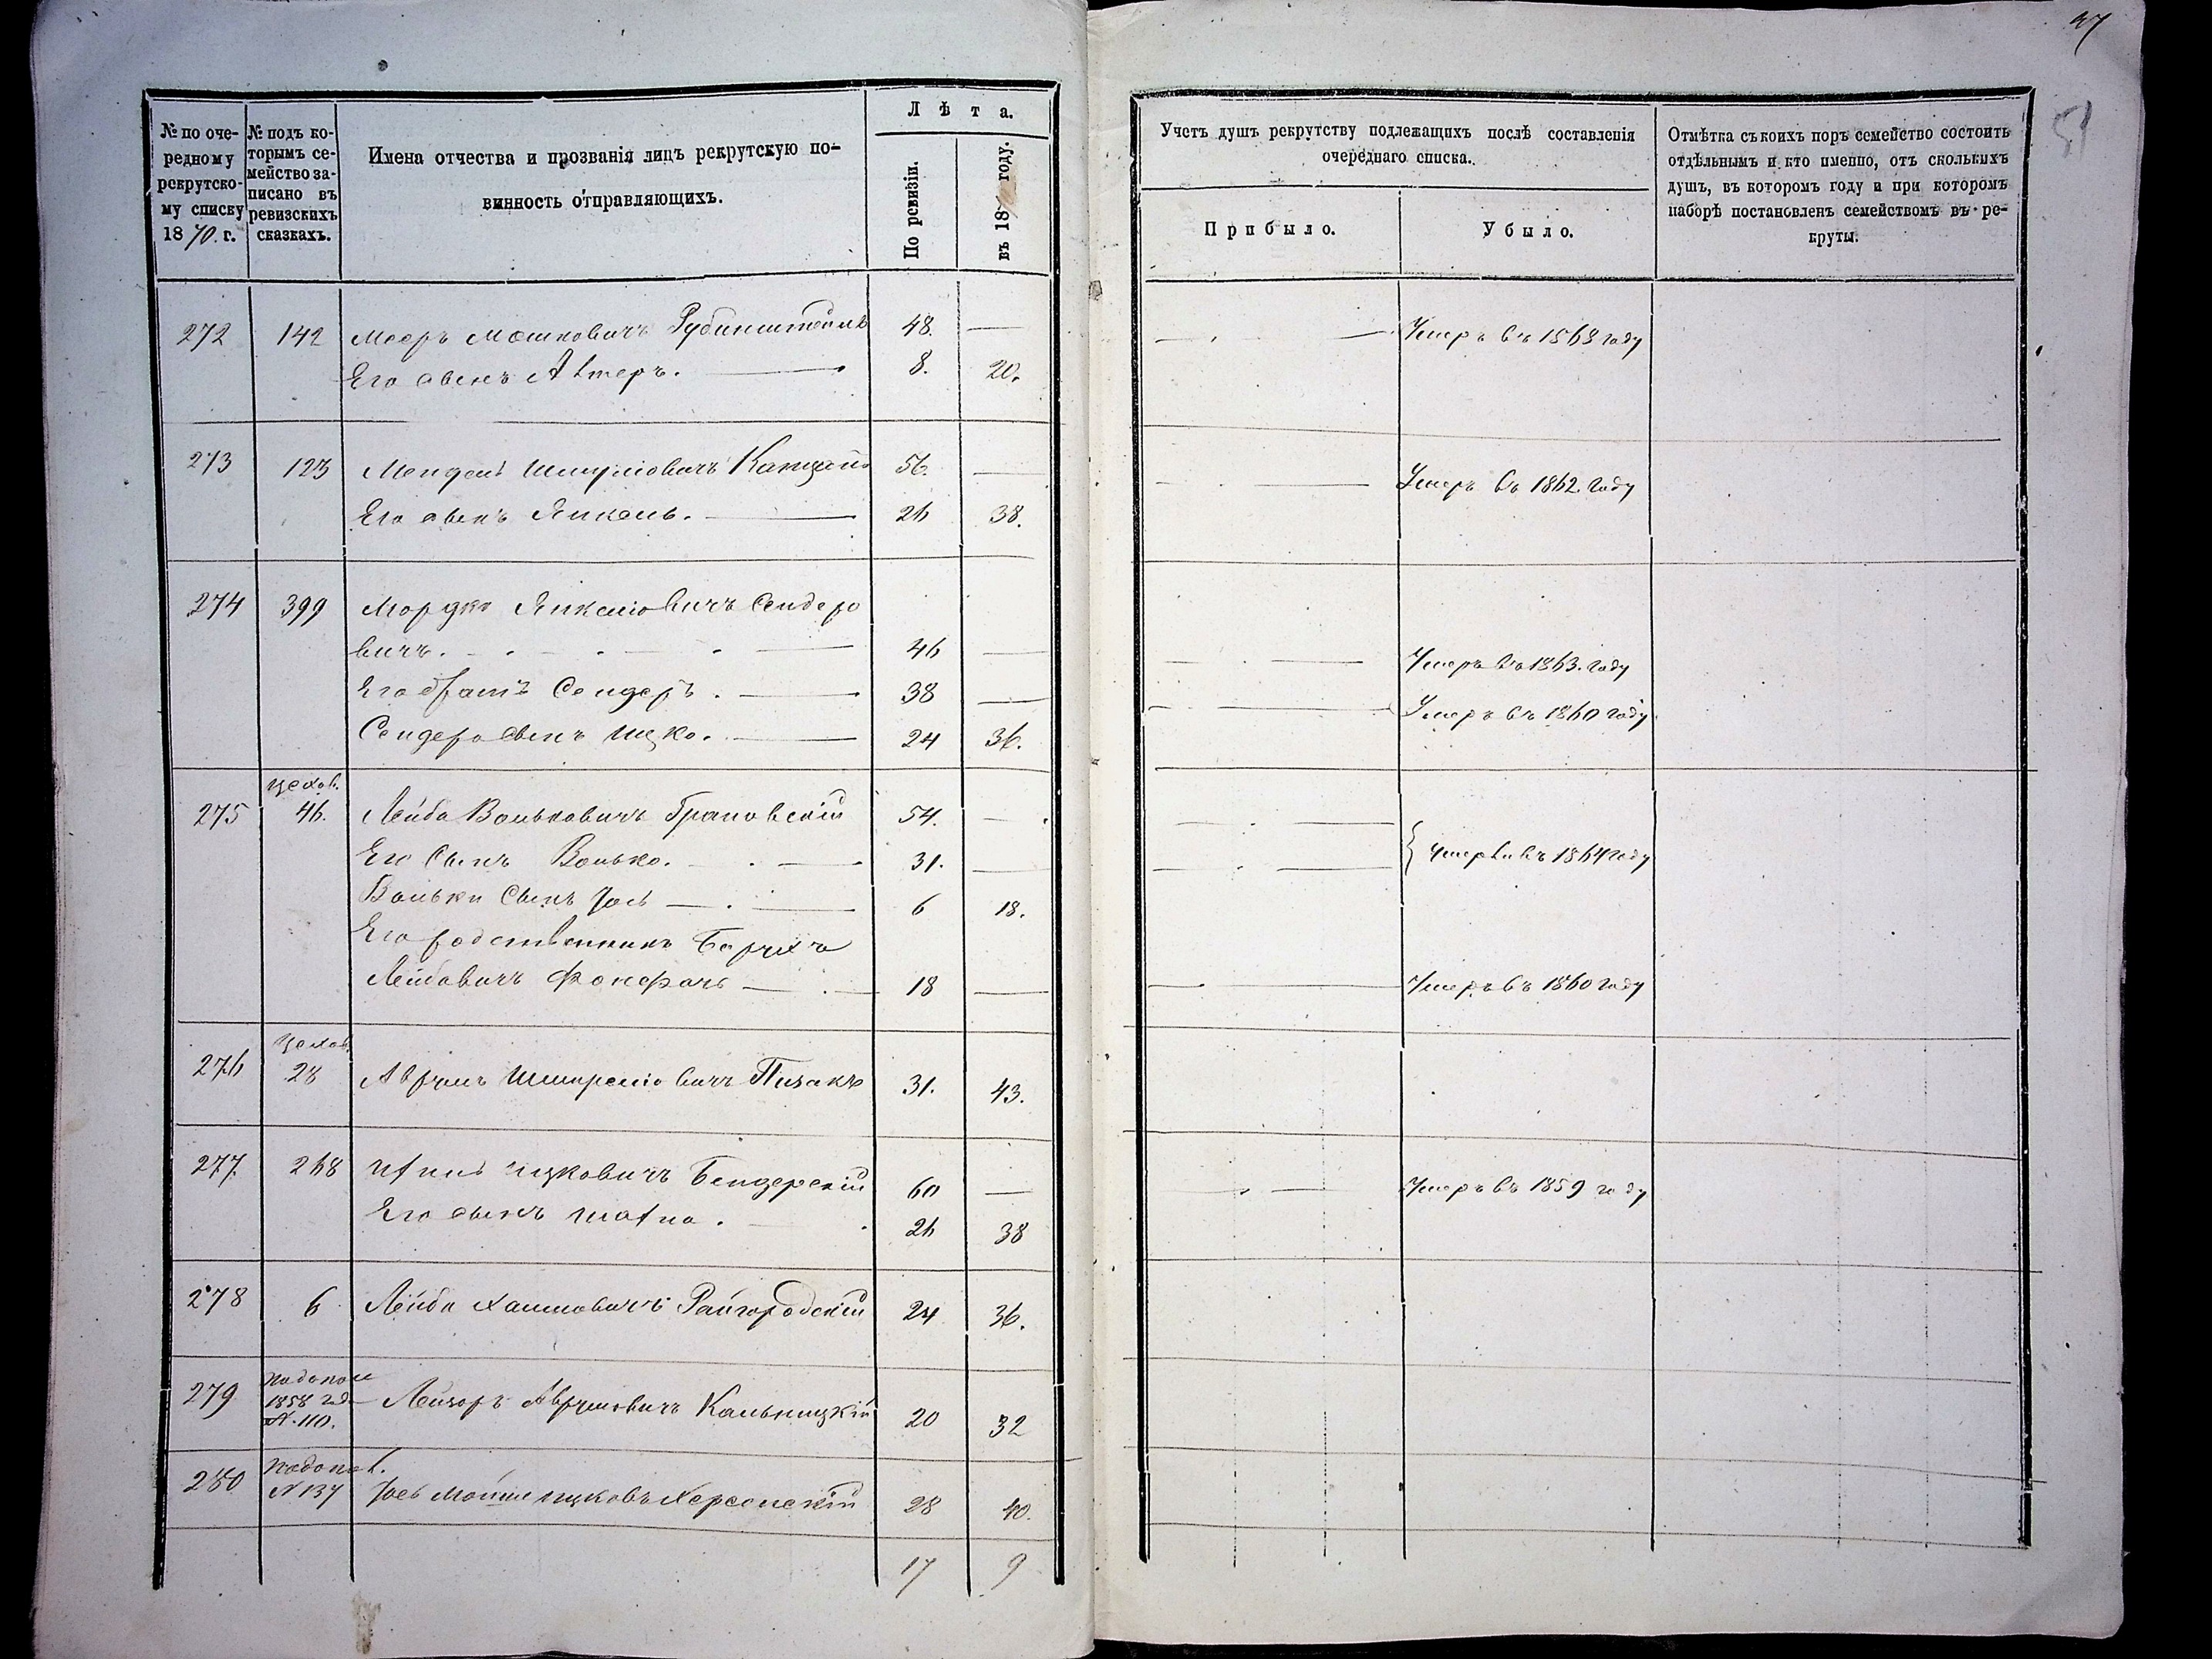 47
51
№ по оче-
редному
рекрутско-
му списку
1870. г.
№ подъ ко-
торымъ се-
мейство за-
писано въ
ревизскихъ
сказкахъ.
Имена отчества и прозванія лицъ рекрутскую по-
винность отправляющихъ.
Лѣта.
По ревизіи.
въ 18 году.
Учетъ душъ рекрутству подлежащихъ послѣ составленія
очереднаго списка.
Прибыло.
Убыло.
Отмѣтка съ коихъ поръ семейство состоитъ
отдѣльнымъ и кто именно, отъ сколькихъ
душъ, въ которомъ году и при которомъ
наборѣ постановленъ семействомъ въ ре-
круты.
272 142 Мееръ Мошковичъ Рубинштейнъ 48. — Умеръ въ 1868 году
Его сынъ Алтеръ. 8. 20.
273 123 Мендель Шмулiовичъ 56. — Умеръ въ 1862 году
Его сынъ Янкель. 26 38.
274 399 Мордко Янкелiовичъ Сендеро
вичъ. 46 — Умеръ въ 1863. году
Его братъ Сендеръ. 38 — Умеръ въ 1860 году
Сендера сынъ Ицко. 24 36.
275 цехов. 46. Лейба Вольковичъ Грановскій 54. —
Его сынъ Волько. 31. — Умерли въ 1864 году
Вольки сынъ Іось 6 18.
Его родственникъ Борухъ
Лейбовичъ 18 — Умеръ въ 1860 году
276 цехов. 28 Аврумъ Шмерелiовичъ 31. 43.
277 268 Ицковичъ Бендерскій 60 — Умеръ въ 1859 году
Его сынъ 26 38
278 6 Лейба Хаимовичъ Райгородскій 24 36.
279 по допол 1858 год № 110. Лейзоръ Аврумовичъ Кальницкій 20 32
280 по допол. № 137 Іось Мошко Ицковъ Херсонскій 28 40.
17 9